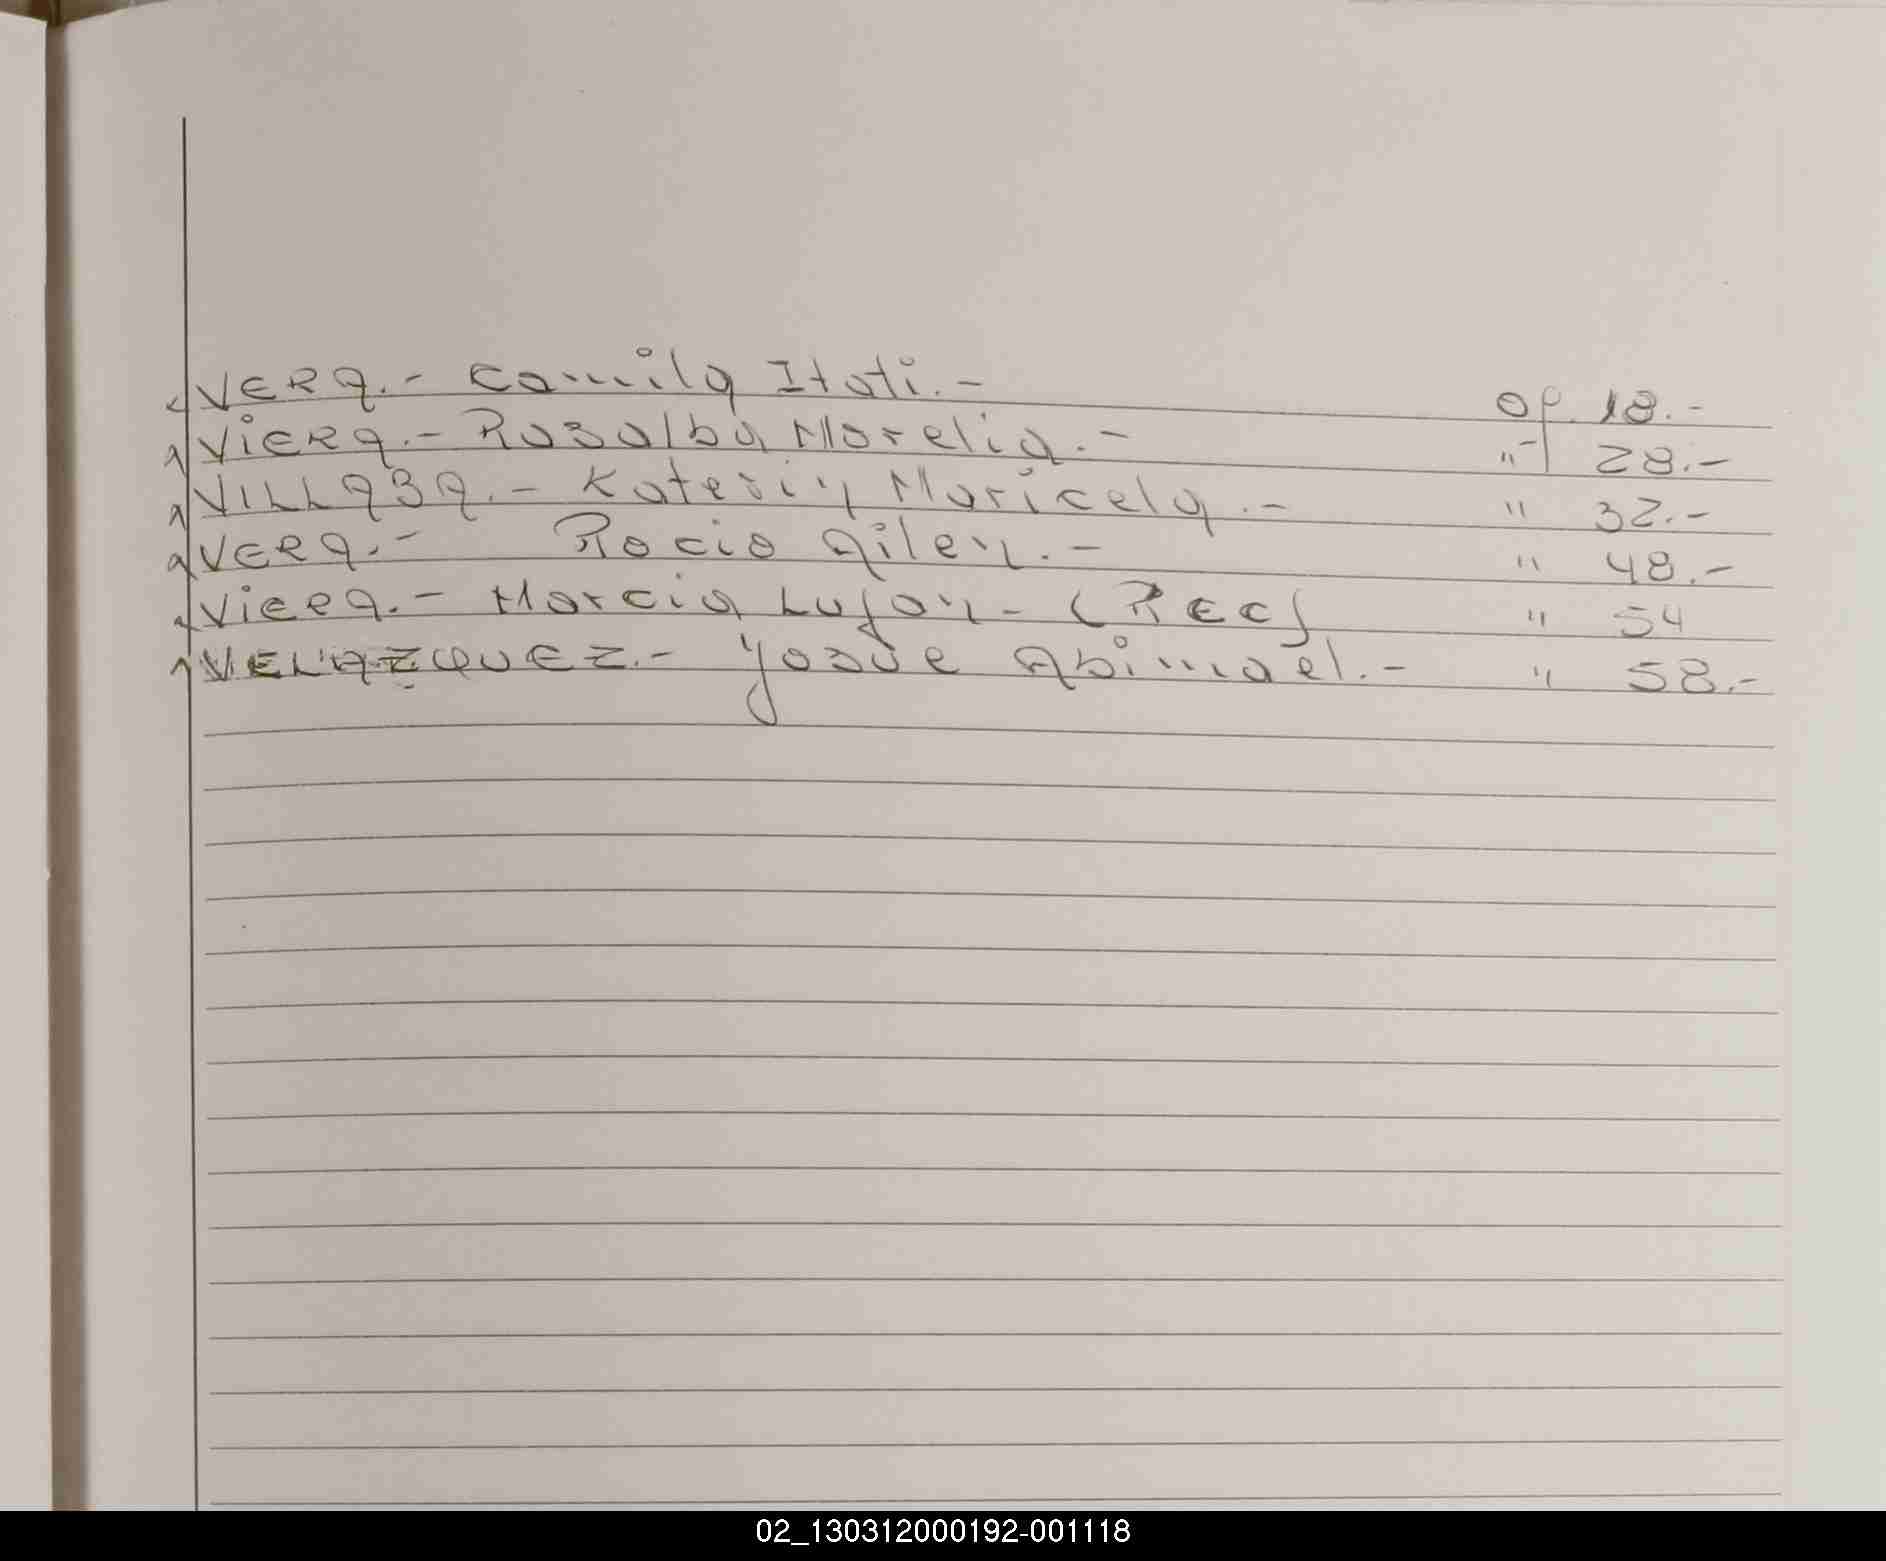 VERA.- Camila Itati.- Of. 18.-
VIERA.- Rosalba Morelia.- "-| 28.-
VILLASA.- Katerin Maricela.- " 32.-
VERA.- Rocio Ailen.- " 48.-
VIERA.- Marcia Lujan- (REC) " 54
VELAZQUEZ.- Yosue Abimael.- " 58.-
02_130312000192-001118